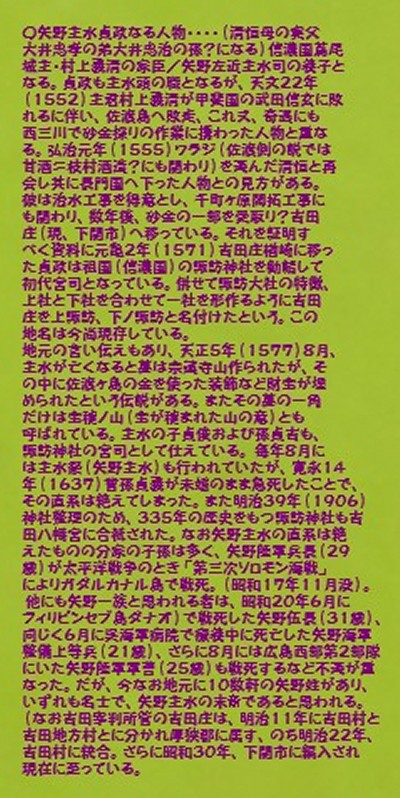 〇矢野主水貞政なる人物・・・・(清恒母の実父
大井忠孝の弟大井忠治の孫?になる)信濃国葛尾
城主・村上義清の家臣/矢野左近主水司の養子と
なる。貞政も主水頭の職となるが、天文22年
(1552)主君村上義清が甲斐国の武田信玄に敗
れるに伴い、佐渡島へ敗走、これ又、奇遇にも
西三川で砂金採りの作業に携わった人物と重な
る。弘治元年(1555)ワラジ(佐渡側の説では
甘酒=枝村酒造?にも関わり)を選んだ清恒と再
会し共に長門国へ下った人物との見方がある。
彼は治水工事を得意とし、千町ヶ原開拓工事に
も関わり、数年後、砂金の一部を受取り?吉田
庄(現、下関市)へ移っている。それを証明す
べく資料に元亀2年(1571)吉田庄楢崎に移っ
た貞政は祖国(信濃国)の諏訪神社を勧請して
初代宮司となっている。併せて諏訪大社の特徴、
上社と下社を合わせて一社を形作るように吉田
庄を上諏訪、下ノ諏訪と名付けたという。この
地名は今尚現存している。
地元の言い伝えもあり、天正5年(1577)8月、
主水が亡くなると墓は宗頭寺山作られたが、そ
の中に佐渡ヶ島の金を使った装飾など財宝が埋
められたという伝説がある。またその墓の一角
だけは宝積ノ山(宝が積まれた山の意)とも
呼ばれている。主水の子貞俊および孫貞吉も、
諏訪神社の宮司として仕えている。毎年8月に
は主水祭(矢野主水)も行われていたが、寛永14
年(1637)曽孫貞義が未婚のまま急死したことで、
その直系は絶えてしまった。また明治39年(1906)
神社整理のため、335年の歴史をもつ諏訪神社も吉
田八幡宮に合祀された。なお矢野主水の直系は絶
えたものの分家の子孫は多く、矢野陸軍兵長(29
歳)が太平洋戦争のとき「第三次ソロモン海戦」
によりガダルカナル島で戦死。(昭和17年11月没)。
他にも矢野一族と思われる者は、昭和20年6月に
フィリピンセブ島ダナオ)で戦死した矢野伍長(31歳)、
同じく6月に呉海軍病院で療養中に死亡した矢野海軍
整備上等兵(21歳)、さらに8月には広島西部第2部隊
にいた矢野陸軍軍曹(25歳)も戦死するなど不運が重
なった。だが、今なお地元に10数軒の矢野姓があり、
いずれも名士で、矢野主水の末裔であると思われる。
(なお吉田宰判所管の吉田庄は、明治11年に吉田村と
吉田地方村とに分かれ厚狭郡に属す、のち明治22年、
吉田村に統合。さらに昭和30年、下関市に編入され
現在に至っている。